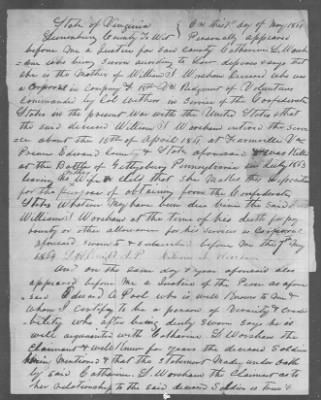 State of Virginia } On this 7th day of May 1864
Lunenburg County To Wit } Personally appeared
before me a Justice for said county Catharine S. Worsham
who being sworn according to law deposes & says that
she is the Mother of William J. Worsham Deceased who was
a Corporal in Company 18th Va Regiment of Volunteers
Commanded by Col Withers in Service of the Confederate
States in the present war with the United States that
the said deceased William J Worsham entered the service
on or about the 18th of April 1861 at Farmville Va
Prince Edward County State aforesaid & was Killed
at the Battle of Gettysburg Pennsylvania July 1863
leaving no Wife or child that she makes this deposition
for the purpose of obtaining from the Confederate
States Whatever may have been due him the said
William J Worsham at the time of his death for pay
bounty or other allowance for his services as Corporal
aforesaid sworn to & subscribed before me this 7th May
1864 J.P. Catharine S. Worsham
And on the same day & year aforesaid also
appeared before me a Justice of the Peace as afore
said Edward A Pool who is well Known to me &
whom I certify to be a person of Veracity & credi
bility who after being duly sworn says he is
well acquainted with Catharine S. Worsham the
Claimant & well Knew for years the deceased Soldier
herein mentioned & that the statement made under oath
by said Catharine S. Worsham the Claimant as to
her relationship to the said deceased Soldier is true &